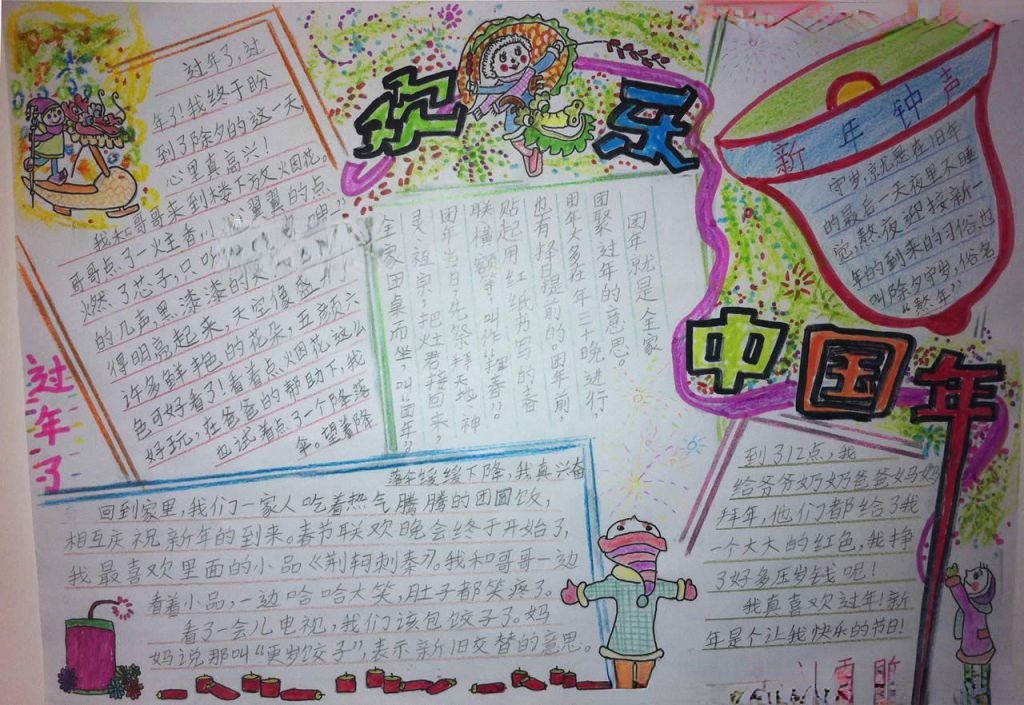 欢乐
中国年
过年了
过年了,过
年了!我终于盼
到了除夕的这一天,
心里真高兴!
我和哥哥来到楼下放火烟花。
哥哥点了一火主香,小心翼翼的点
燃了芯子,只听
的几声,黑漆漆的天
得明亮起来,天空像盛开
许多鲜艳色的花朵,五颜六
色可好看了!看着点火烟花这么
好玩,在爸爸的帮助下,我
也试着点了一个降落
伞。望着降
落伞缓缓下降,我真兴奋
团年就是全家
团聚过年的意思。
团年大多在年三十晚进行,
也有择日提前的。团年前,
贴起用红纸为写的春
联横额等,叫作“挥春”。
团年当日,先祭拜天地、神
灵、祖宗,把灶君接回来,
全家团桌而坐,叫“团年”
新年钟声
守岁,就是在旧年
的最后一天夜里不睡
觉,熬夜迎接新一
年的到来的习俗,也
叫除夕守岁,俗名
“熬年”
回到家里,我们一家人吃着热气腾腾的团圆饭,
相互庆祝新年的到来。春节联欢晚会终于开始了,
我最喜欢里面的小品《荆轲刺秦》。我和哥哥一边
看着小品,一边哈哈大笑,肚子都笑疼了。
看了一会儿电视,我们该包饺子了。妈
妈说那叫“更岁饺子”,表示新旧交替的意思。
到了12点,我
给爷爷奶奶爸爸妈妈
拜年,他们都给了我
一个大大的红包,我挣
了好多压岁钱呢!
我真喜欢过年!新
年是个让我快乐的节日!